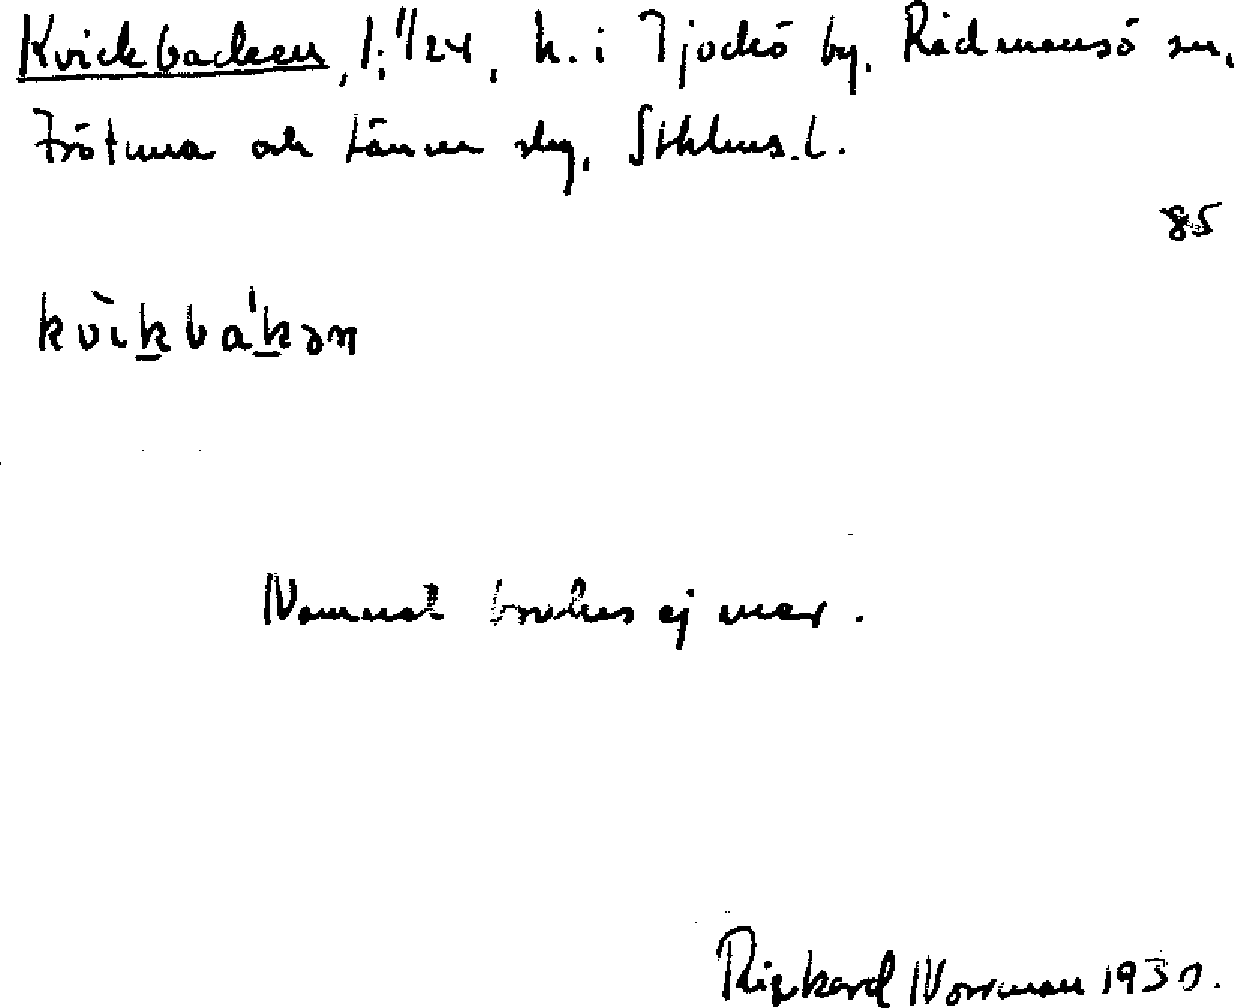 Kvickbacken, 1:11/24, h. i Tjockö by. Rådmansö sn,
Frötuna och Länna slg, Sthlms. l.
85
kvìkbákən
Namnet brukas ej mer.
Rickard Norrman 1930.